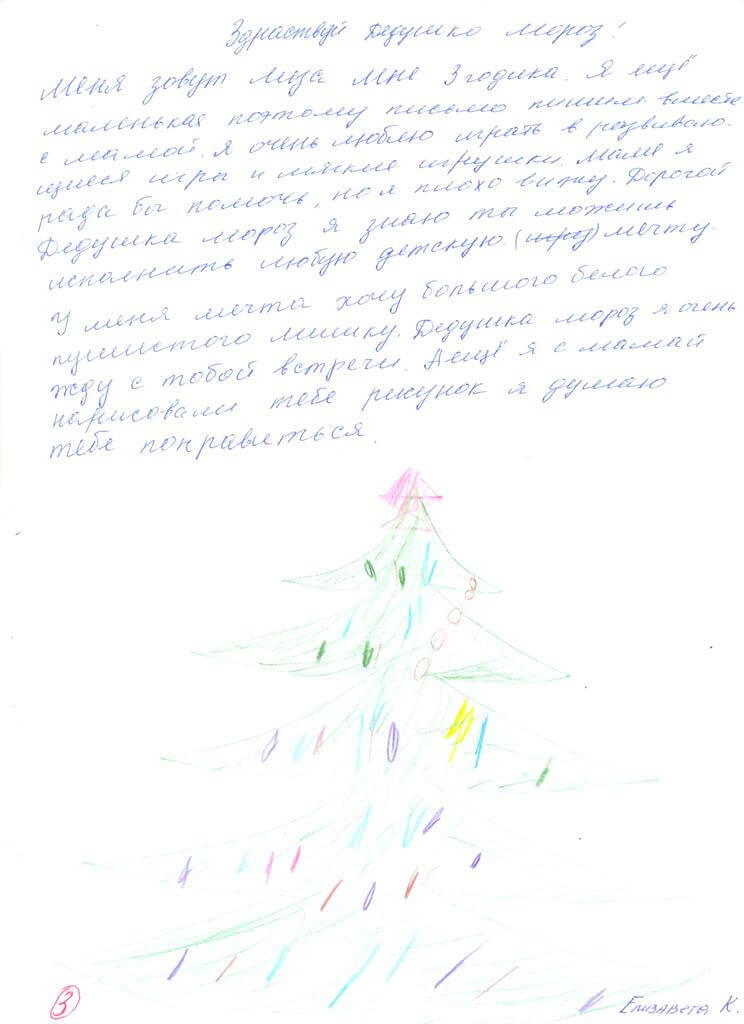 Здраствуй Дедушка мороз!
Меня зовут Лиза мне 3 годика. Я ещё
маленькая поэтому письмо пишим вместе
с мамой. Я очень люблю играть в развиваю-
щиеся игры и мягкие игрушки. Маме я
рада бы помочь, но я плохо вижу. Дорогой
Дедушка мороз я знаю ты можишь
исполнить любую детскую мечту.
У меня мечта хочу большого белого
пушистого мишку. Дедушка мороз я очень
жду с тобой встречи. А ещё я с мамай
нарисовали тебе рисунок я думаю
тебе понравиться.
3
Елизавета К.